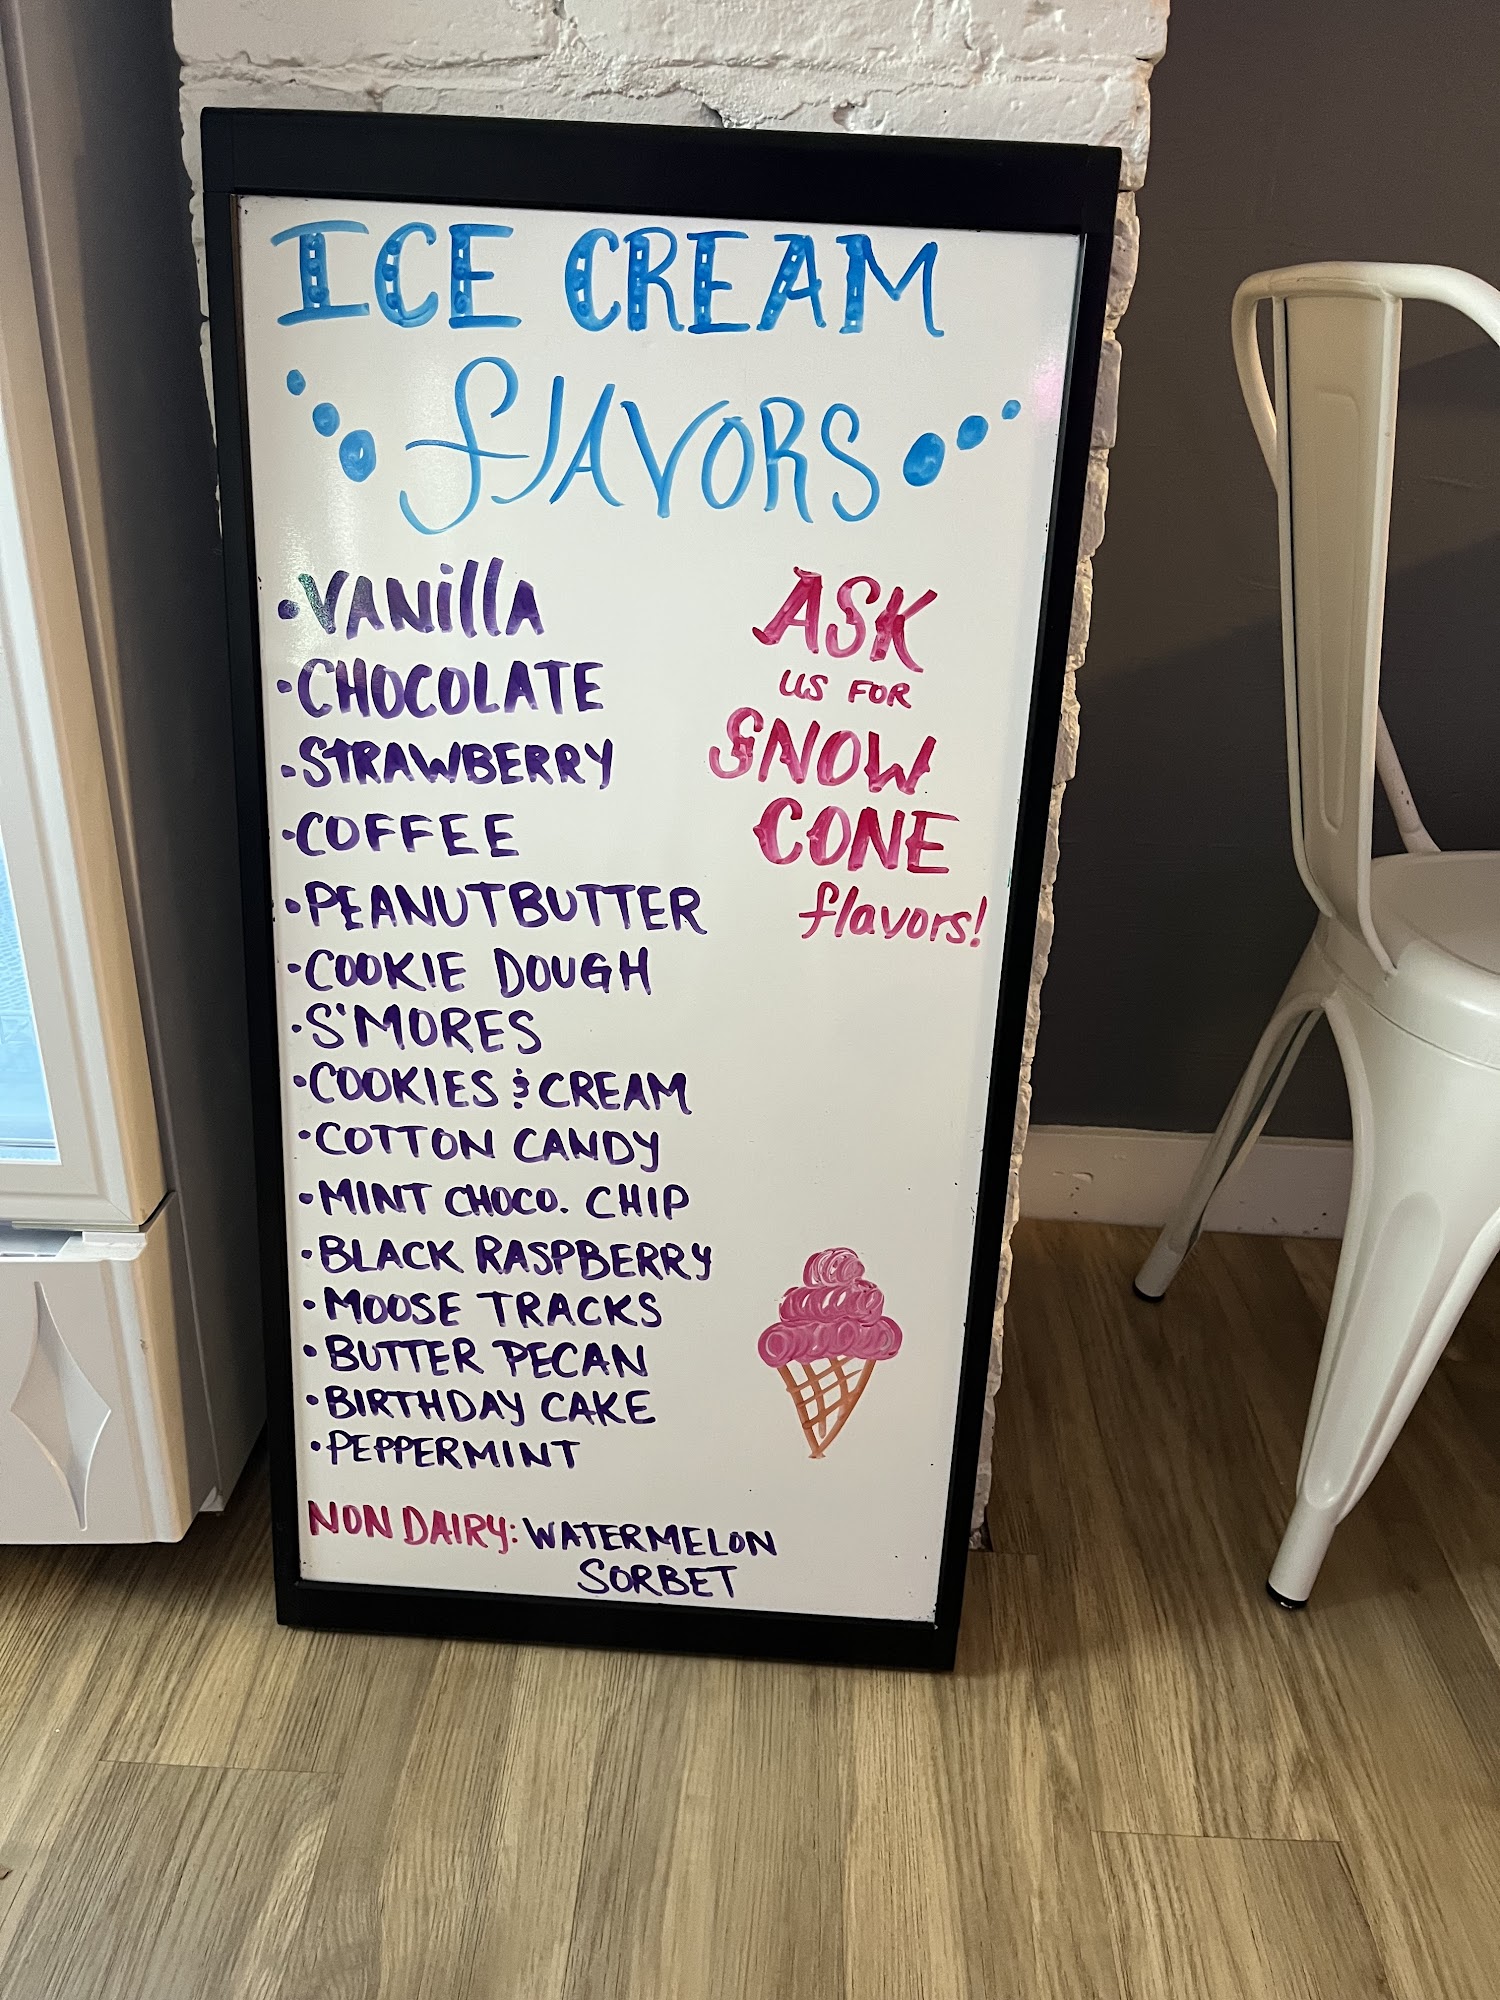 ICE CREAM
flAVORS
•VANillA
•CHOCOLATE
•STRAWBERRY
•COFFEE
•PEANUTBUTTER
•COOKIE DOUGH
•S'MORES
•COOKIES & CREAM
•COTTON CANDY
•MINT CHOCO. CHIP
•BLACK RASPBERRY
•MOOSE TRACKS
•BUTTER PECAN
•BIRTHDAY CAKE
•PEPPERMINT
NON DAIRY: WATERMELON
SORBET
ASK
US FOR
SNOW
CONE
flavors!